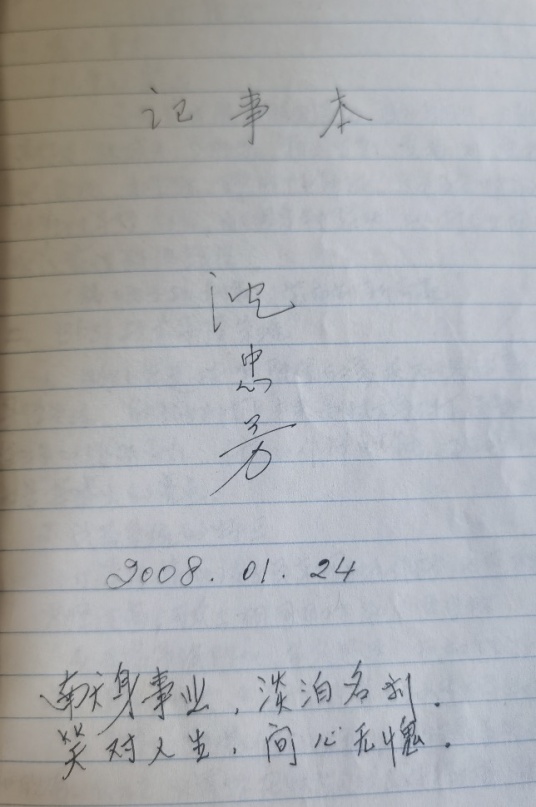 记事本
沈
忠
芳
2008.01.24
献身事业，淡泊名利．
笑对人生，问心无愧．